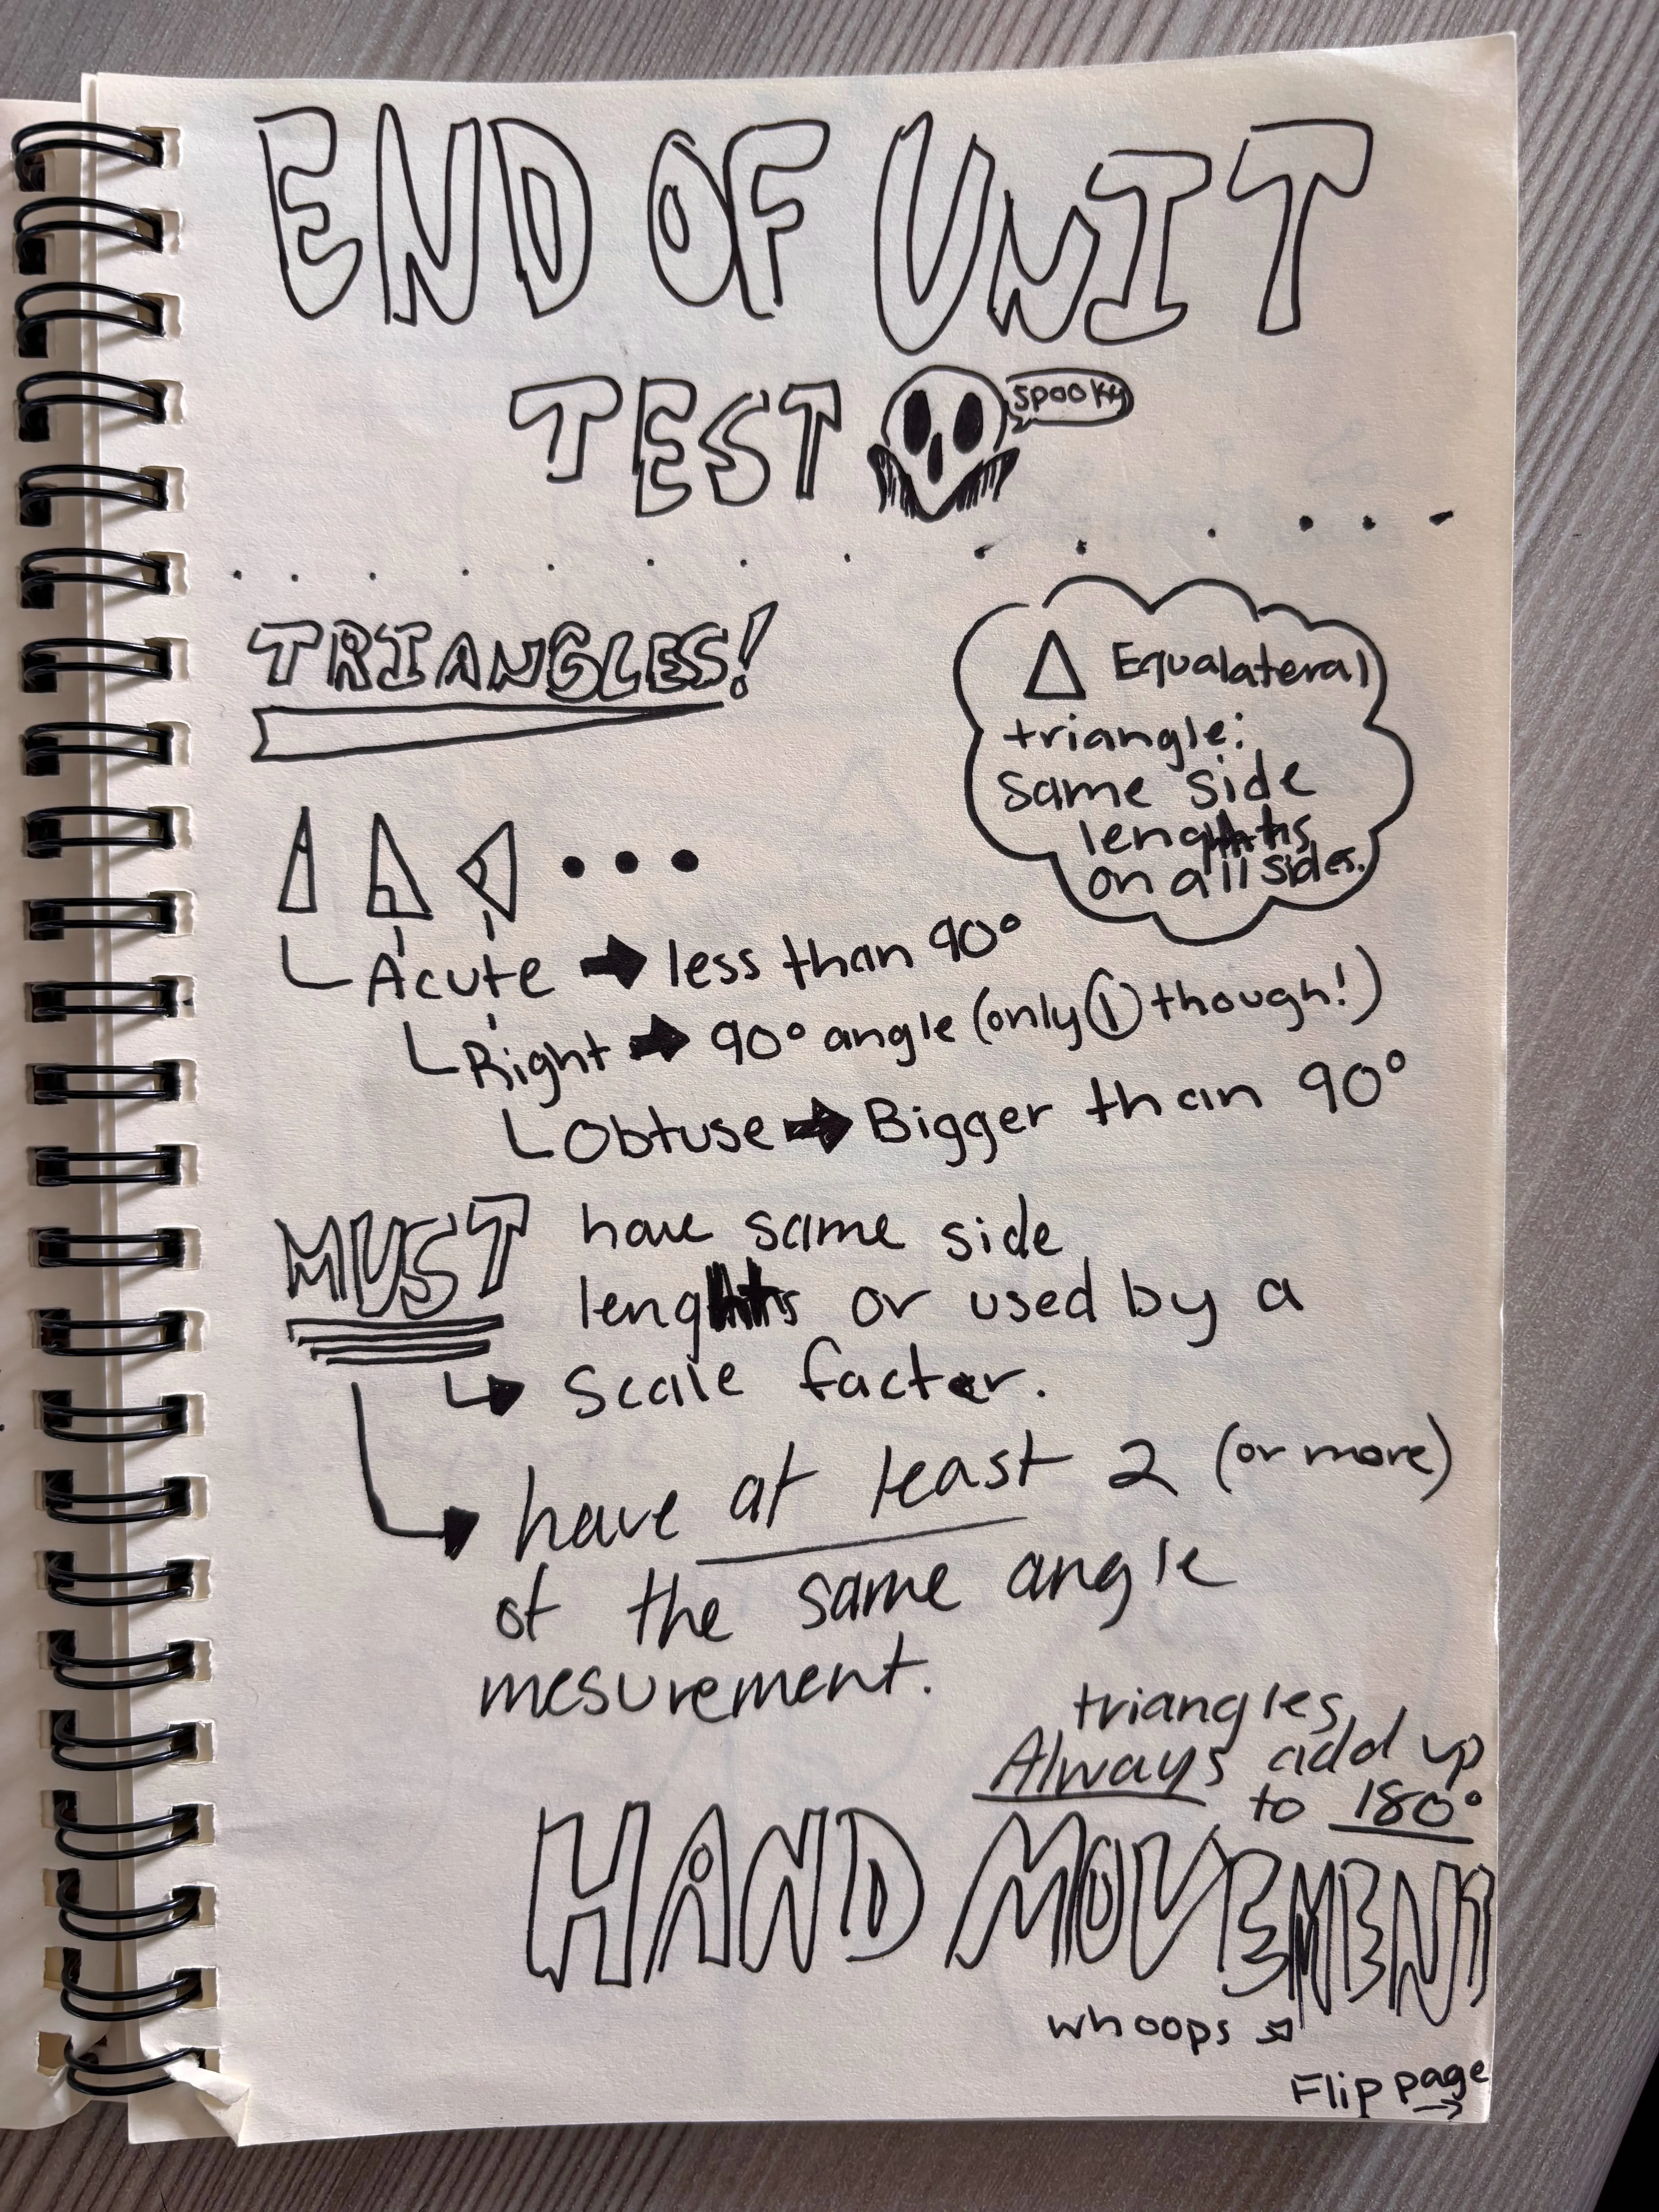 END OF UNIT
TEST
spooky
TRIANGLES!
Equalateral
triangle:
same side
lengths
on all sides.
Acute → less than 90°
Right → 90° angle (only 1 though!)
Obtuse → Bigger than 90°
MUST have same side
lengths or used by a
↳ scale factor.
↳ have at least 2 (or more)
of the same angle
mesurement.
triangles
Always add up
to 180°
HAND MOVEMENT
whoops
Flip page →